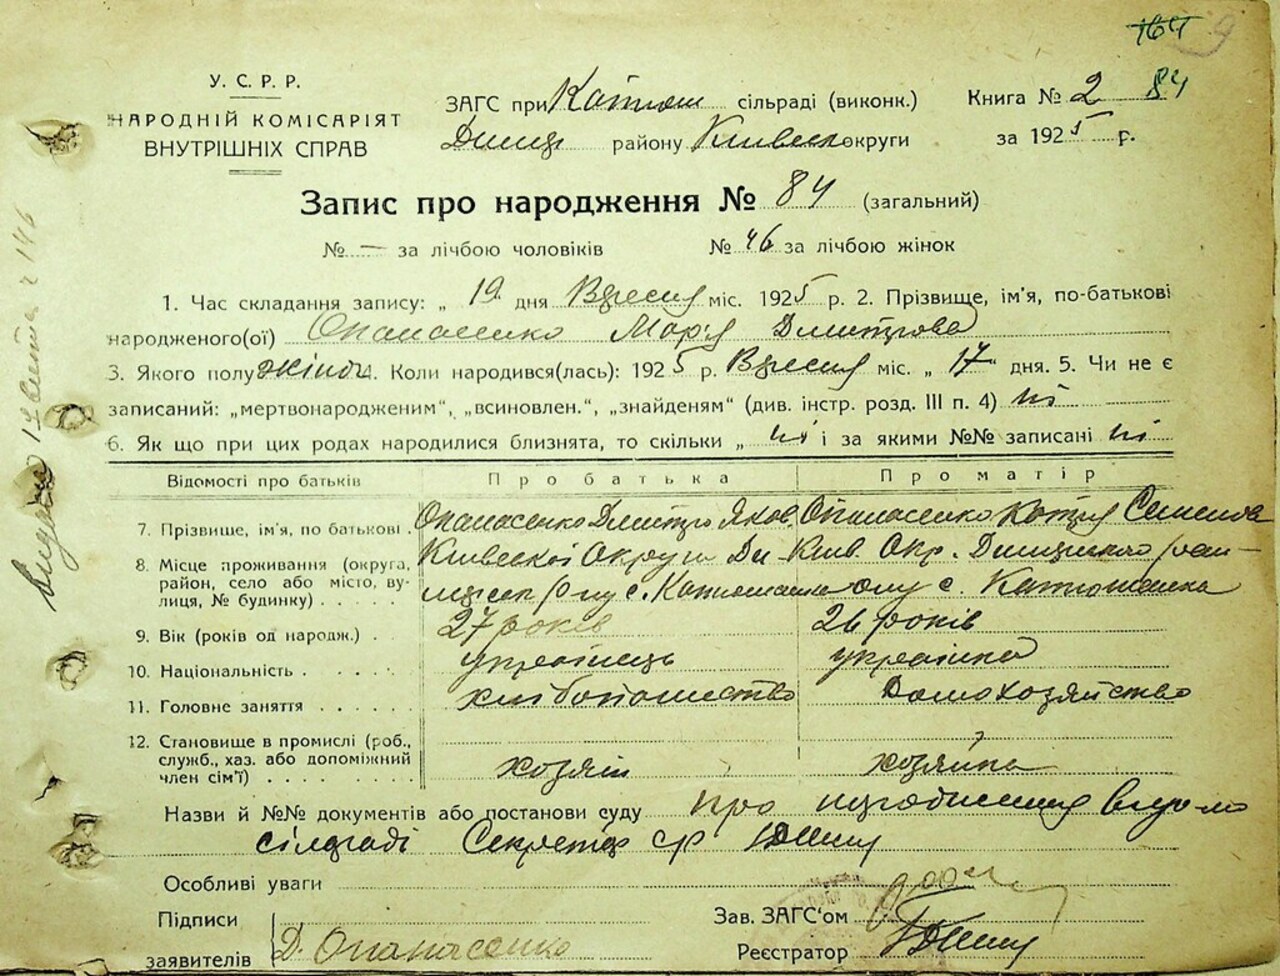 164 9
У. С. Р. Р.
НАРОДНІЙ КОМІСАРІЯТ
ВНУТРІШНІХ СПРАВ
ЗАГС при Катюш сільраді (виконк.)
Димер району Київськ округи
Книга № 2 84
за 1925 г.
Запис про народження № 84 (загальний)
№ — за лічбою чоловіків № 46 за лічбою жінок
1. Час складання запису: „ 19 дня Вересня міс. 1925 р. 2. Прізвище, ім'я, по-батькові
народженого(ої) Опанасенко Марія Дмитрова
3. Якого полу жіноч. 4. Коли народився(лась): 1925 р. Вересня міс. „ 17 " дня. 5. Чи не є
записаний: „мертвонародженим", „всиновлен.", „знайденям" (див. інстр. розд. III п. 4) ні
6. Як що при цих родах народилися близнята, то скільки „ ні і за якими №№ записані ні
Відомості про батьків Про батька Про матір
7. Прізвище, ім'я, по батькові . Опанасенко Дмитро Яков. Опанасенко Катря Семенова
8. Місце проживання (округа, район, село або місто, вулиця, № будинку) . . . . . Київської Округи с. Катюшанка Київ. Окр. с. Катюшанка
9. Вік (років од народж.) . 27 років 26 років
10. Національність . . . . . українець українка
11. Головне заняття . . . . . . хліборобство Домохозяйство
12. Становище в промислі (роб., служб., хаз. або допоміжний член сім'ї) . . . . . . . хозяін хозяйка
Назви й №№ документів або постанови суду про
сілради Секретар
Особливі уваги
Підписи
заявителів Д. Опанасенко
Зав. ЗАГС'ом
Реєстратор